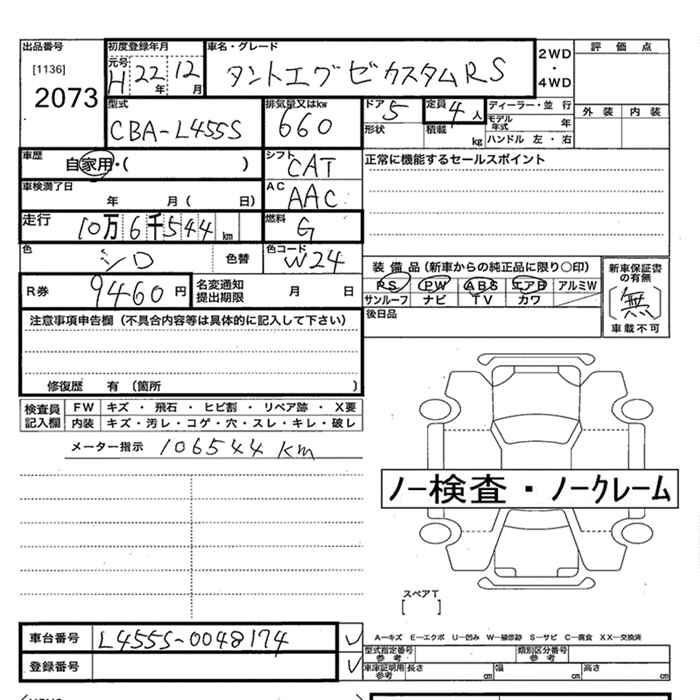 出品番号 初度登録年月 車名・グレード 評価点
[1136] 元号 2WD
2073 H 22年 12月 タントエグゼカスタムRS ・
4WD
型式 排気量又はkw ドア 定員 ディーラー・並行 外装 内装
CBA-L455S 660 5 4人 モデル年式 年
形状 積載 kg ハンドル 左・右
車歴 自家用・( ) シフト CAT 正常に機能するセールスポイント
車検満了日 年 月( 日) AC AAC
走行 10万6千544km 燃料 G
色 シロ 色替 色コード W24
装備品(新車からの純正品に限り○印) 新車保証書の有無
R券 9460円 名変通知提出期限 月 日 PS PW ABS エアB アルミW 〔無〕
サンルーフ ナビ TV カワ 車載不可
注意事項申告欄(不具合内容等は具体的に記入して下さい) 後日品
修復歴 有 〔箇所 〕
検査員記入欄 FW キズ・飛石・ヒビ割・リペア跡・X要
内装 キズ・汚レ・コゲ・穴・スレ・キレ・破レ
メーター指示 106544km
ノー検査・ノークレーム
スペアT
[ ]
車台番号 L455S-0048174 A―キズ E―エクボ U―凹み W―補修跡 S―サビ C―腐食 XX―交換済
型式指定番号 参考 類別区分番号 参考
登録番号 車庫証明用 参考 長さ cm 幅 cm 高さ cm